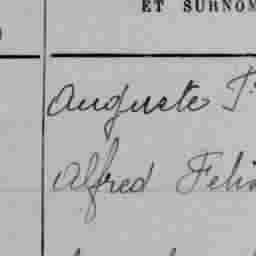 ET SURNOM
Auguste
Alfred